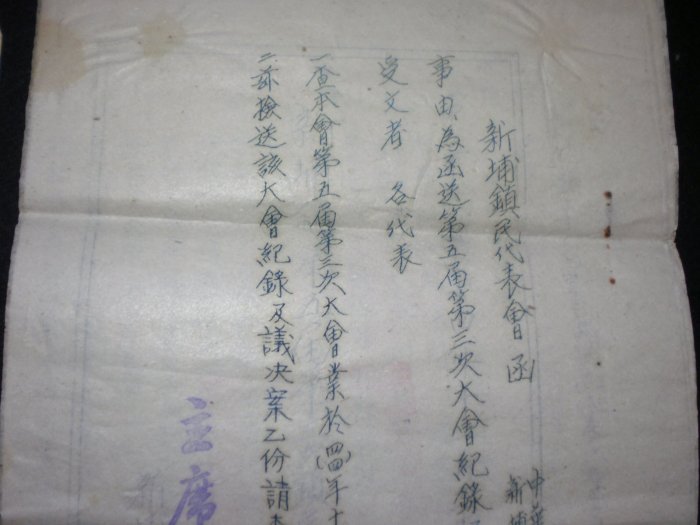 新埔鎮民代表會函
中華
新埔
事由、為函送第五屆第三次大會紀錄
受文者 各代表
一查本會第五屆第三次大會業於(四四)年十
二茲檢送該大會紀錄及議決案乙份請查
主席
新埔